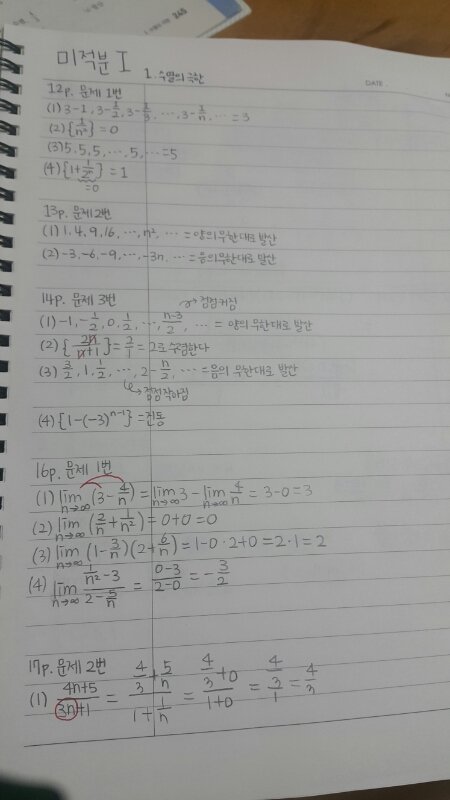 미적분 I
1. 수열의 극한
DATE .
12p. 문제 1번
(1) 3-1, 3-1/2, 3-1/3, ⋯, 3-1/n, ⋯ = 3
(2) {1/n²} = 0
(3) 5, 5, 5, ⋯, 5, ⋯ = 5
(4) {1+1/2ⁿ} = 1
=0
13p. 문제 2번
(1) 1, 4, 9, 16, ⋯, n², ⋯ = 양의 무한대로 발산
(2) -3, -6, -9, ⋯, -3n, ⋯ = 음의 무한대로 발산
14p. 문제 3번
→ 점점 커짐
(1) -1, -1/2, 0, 1/2, ⋯, (n-3)/2, ⋯ = 양의 무한대로 발산
(2) {2n/(n+1)} = 2/1 = 2로 수렴한다
(3) 3/2, 1, 1/2, ⋯, 2-n/2, ⋯ = 음의 무한대로 발산
→ 점점 작아짐
(4) {1-(-3)ⁿ⁻¹} = 진동
16p. 문제 1번
(1) lim n→∞ (3-4/n) = lim n→∞ 3 - lim n→∞ 4/n = 3-0 = 3
(2) lim n→∞ (2/n+1/n²) = 0+0 = 0
(3) lim n→∞ (1-3/n)(2+6/n) = 1-0·2+0 = 2·1 = 2
(4) lim n→∞ (1/n²-3)/(2-5/n) = (0-3)/(2-0) = -3/2
17p. 문제 2번
(1) (4n+5)/(3n+1) = (4/3+5/n)/(1+1/n) = (4/3+0)/(1+0) = (4/3)/1 = 4/3